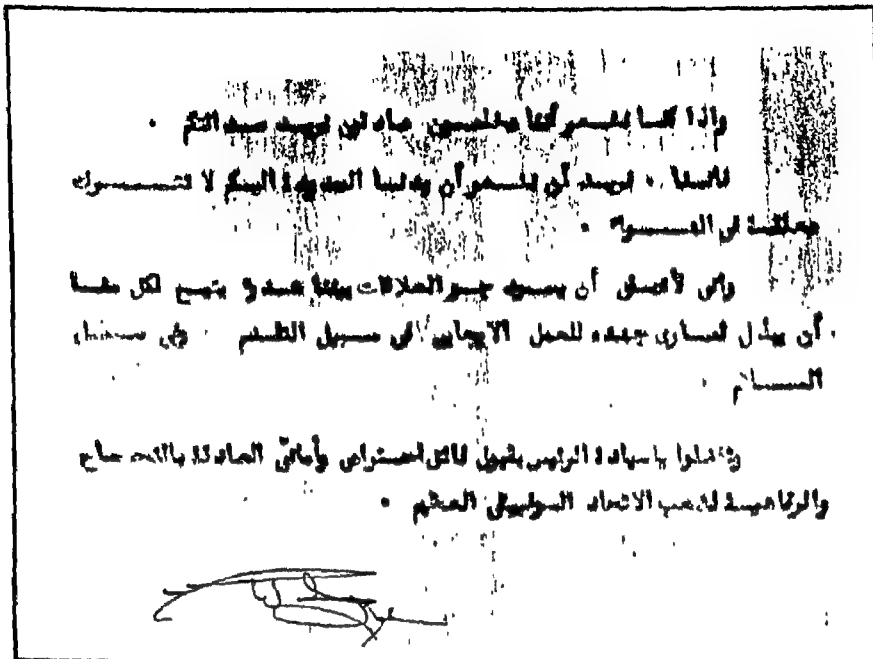 واذا كنا نشعر أننا مخلصين صادقين نريد صداقتكم .
فاننا . نريد أن نشعر أن يدنا الممدودة اليكم لا تتـــرك
معلقة في الهـــواء .
واني لأتمنى أن يسود جو العلاقات بيننا يتيح لكل منا
أن يبذل قصارى جهده للعمل الايجابي في سبيل التقدم وفي سبيل
الســـلام .
وتفضلوا ياسيادة الرئيس بقبول فائق احترامي وأماني الصادقة بالنجـــاح
والرفاهية لشعب الاتحاد السوفييتي العظيم .